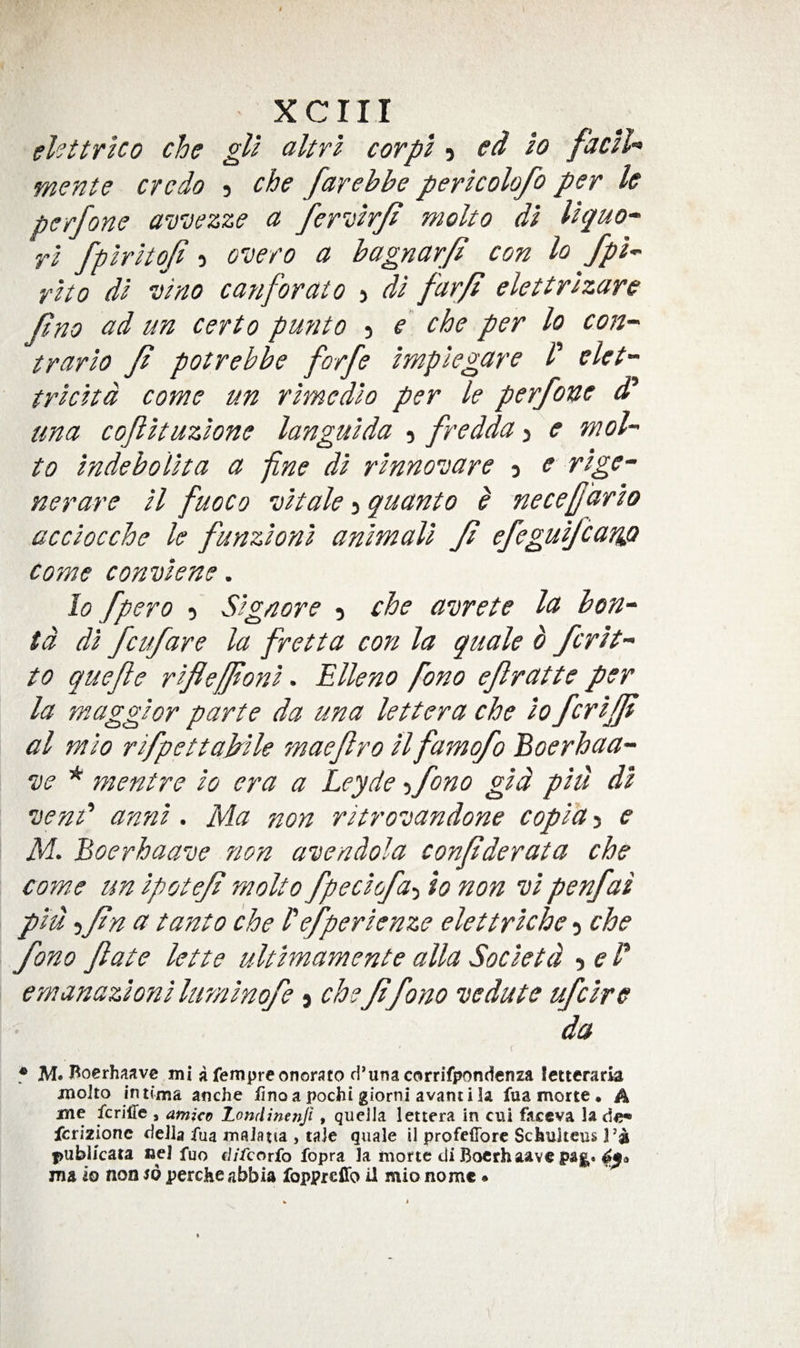 XCIII
elettrico che gli altri corpi , ed io facil-
mente credo , che ſarebbe pericoloſo per le
perſone avvezze a ſervirſi molto di liquo-
ri ſpiritoſi , overo a bagnarſi con lo ſpi-
rito di vino canforato , di farſi elettrizare
ſino ad un certo punto , e che per lo con-
trario ſi potrebbe forſe impiegare l' elet-
tricità come un rimedio per le perſone d'
una coſtituzione languida , fredda , e mol-
to indebolita a fine di rinnovare , e rige-
nerare il fuoco vitale , quanto è neceſſario
acciocche le funzioni animali ſi eſeguiſcano
come conviene .
Io ſpero , Signore , che avrete la bon-
tà di ſcuſare la fretta con la quale ò ſcrit-
to queſte rifleſſioni . Elleno ſono eſtratte per
la maggior parte da una lettera che io ſcriſſi
al mio riſpettabile maeſtro il famoſo Boerhaa-
ve * mentre io era a Leyde , ſono già più di
vent' anni . Ma non ritrovandone copia , e
M. Boerhaave non avendola conſiderata che
come un ipoteſi molto ſpecioſa , io non vi penſai
più , ſin a tanto che l'eſperienze elettriche , che
ſono ſtate lette ultimamente alla Società , e l'
emanazioni luminoſe , che ſi ſono vedute uſcire
da
* M. Boerhaave mi à ſempre onorato d'una corriſpondenza letteraria
molto intima anche ſino a pochi giorni avanti la ſua morte . A
me ſcriſſe , amico Londinenſi , quella lettera in cui faceva la de-
ſcrizione della ſua malatia , tale quale il profeſſore Schulteus l'à
publicata nel ſuo diſcorſo ſopra la morte di Boerhaave pag.
ma io non sò perche abbia ſoppreſſo il mio nome .